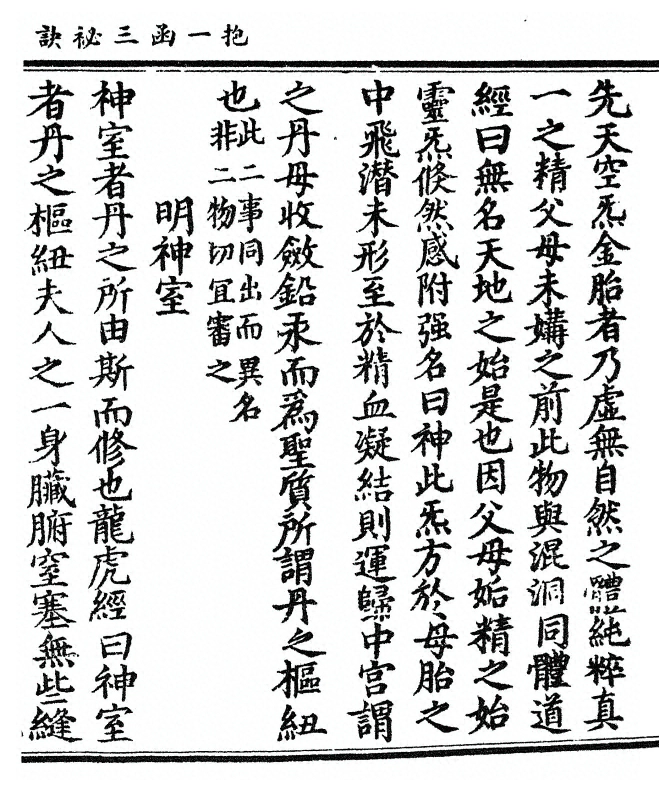 抱一函三祕訣
先天空炁金胎者乃虛無自然之體純粹真
一之精父母未媾之前此物與混洞同體道
經曰無名天地之始是也因父母姤精之始
靈炁倐然感附强名曰神此炁方於母胎之
中飛潜未形至於精血凝結則運歸中宮謂
之丹母收斂鉛汞而爲聖質所謂丹之樞紐
也此二事同出而異名
非二物切冝審之
明神室
神室者丹之所由斯而修也龍虎經曰神室
者丹之樞紐夫人之一身臟腑窒塞無些縫